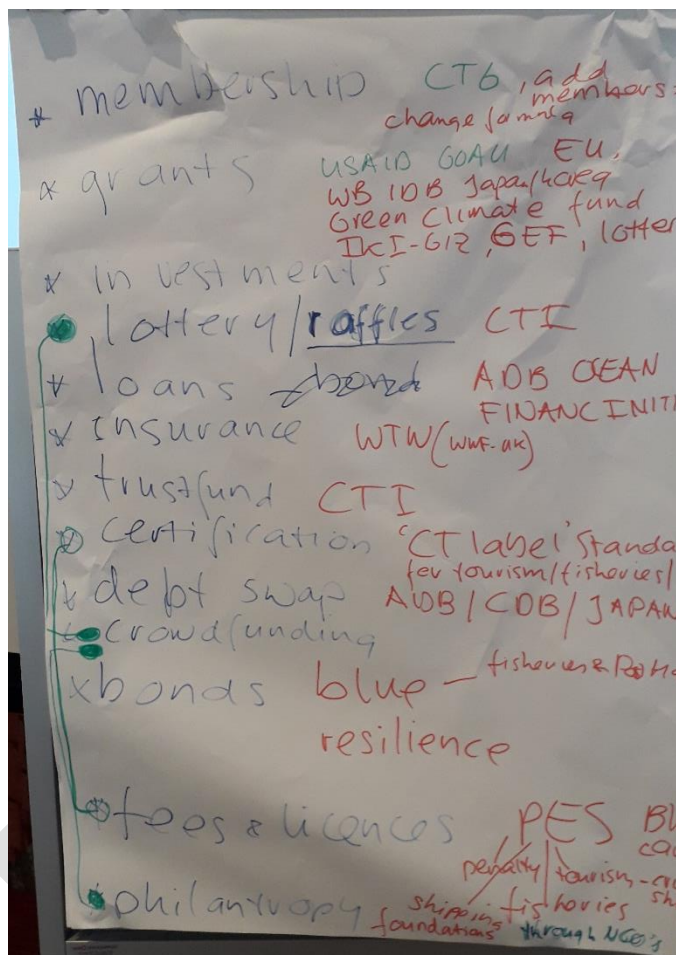 * membership CT6, add members
change formula
* grants USAID GOAU EU.
WB IDB Japan/Korea
Green Climate fund
IKI-GIZ, GEF, lotter
* investments
lottery/raffles CTI
* loans bond ADB OCEAN
FINANC INITI
* insurance WTW (WWF-UK)
* trustfund CTI
certification 'CT label' Standa
for tourism/fisheries/
* debt swap ADB/CDB/JAPAN
crowdfunding
x bonds blue — fisheries &
resilience
fees & licences PES BL
penalty tourism-cru
shipping fisheries sh
philantropy foundations through NGO's